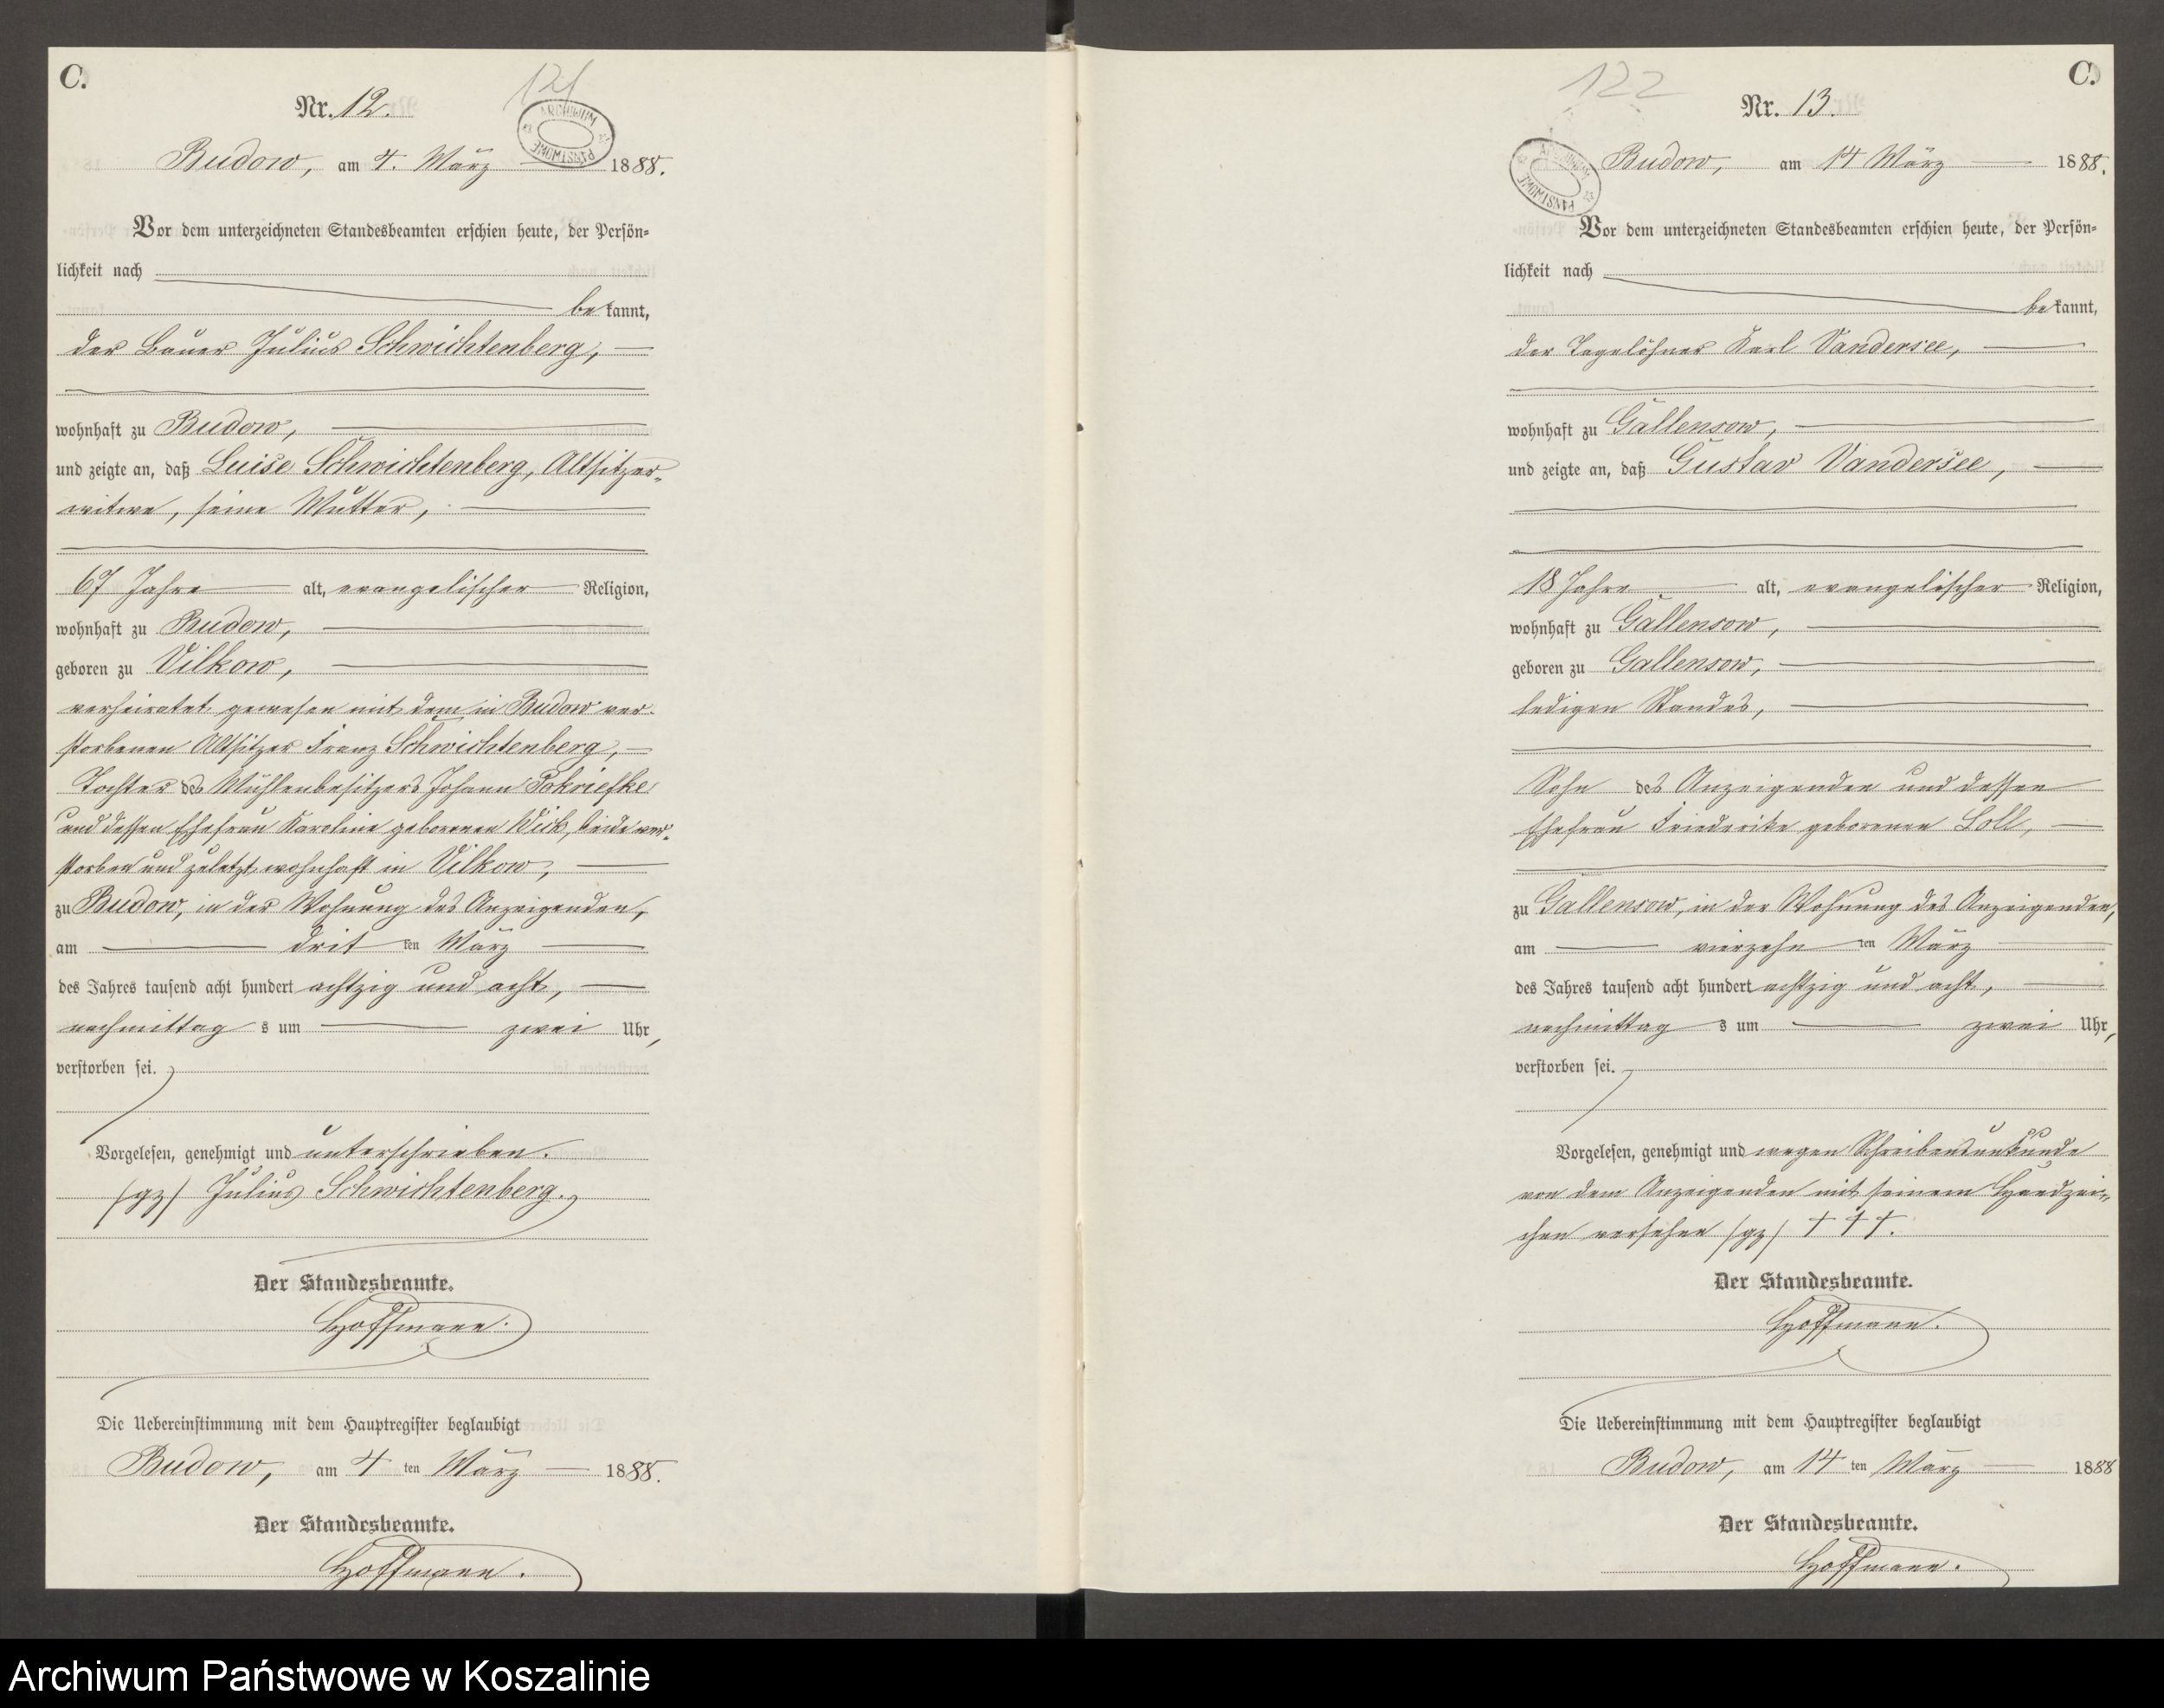 C.
121
Nr. 12.
ARCHIWUM PAŃSTWOWE
Budow, am 4. März 1888.
Vor dem unterzeichneten Standesbeamten erschien heute, der Persön=
lichkeit nach
bekannt,
der Bauer Julius Schwichtenberg,
wohnhaft zu Budow,
und zeigte an, daß Luise Schwichtenberg, Altsitzer-
witwe, seine Mutter,
67 Jahre alt, evangelischer Religion,
wohnhaft zu Budow,
geboren zu Vilkow,
verheiratet gewesen mit dem in Budow ver-
storbenen Altsitzer Franz Schwichtenberg,
Tochter des Mühlenbesitzers Johann Pokriefke
und dessen Ehefrau Karoline geborenen Wick, beide ver-
storben und zuletzt wohnhaft in Vilkow,
zu Budow, in der Wohnung des Anzeigenden,
am dritten März
des Jahres tausend acht hundert achtzig und acht,
nachmittags um zwei Uhr,
verstorben sei.
Vorgelesen, genehmigt und unterschrieben.
(gz) Julius Schwichtenberg.
Der Standesbeamte.
Hoffmann.
Die Uebereinstimmung mit dem Hauptregister beglaubigt
Budow, am 4 ten März 1888.
Der Standesbeamte.
Hoffmann.
C.
122
Nr. 13.
ARCHIWUM PAŃSTWOWE
Budow, am 14 März 1888.
Vor dem unterzeichneten Standesbeamten erschien heute, der Persön=
lichkeit nach
bekannt,
der Tagelöhner Karl Vandersee,
wohnhaft zu Gallensow,
und zeigte an, daß Gustav Vandersee,
18 Jahre alt, evangelischer Religion,
wohnhaft zu Gallensow,
geboren zu Gallensow,
ledigen Standes,
Sohn des Anzeigenden und dessen
Ehefrau Friederike geborenen Loll,
zu Gallensow, in der Wohnung des Anzeigenden,
am vierzehnten März
des Jahres tausend acht hundert achtzig und acht,
nachmittags um zwei Uhr,
verstorben sei.
Vorgelesen, genehmigt und wegen Schreibensunkunde
von dem Anzeigenden mit seinem Handzei-
chen versehen (gz) † † †.
Der Standesbeamte.
Hoffmann.
Die Uebereinstimmung mit dem Hauptregister beglaubigt
Budow, am 14 ten März 1888
Der Standesbeamte.
Hoffmann.
Archiwum Państwowe w Koszalinie